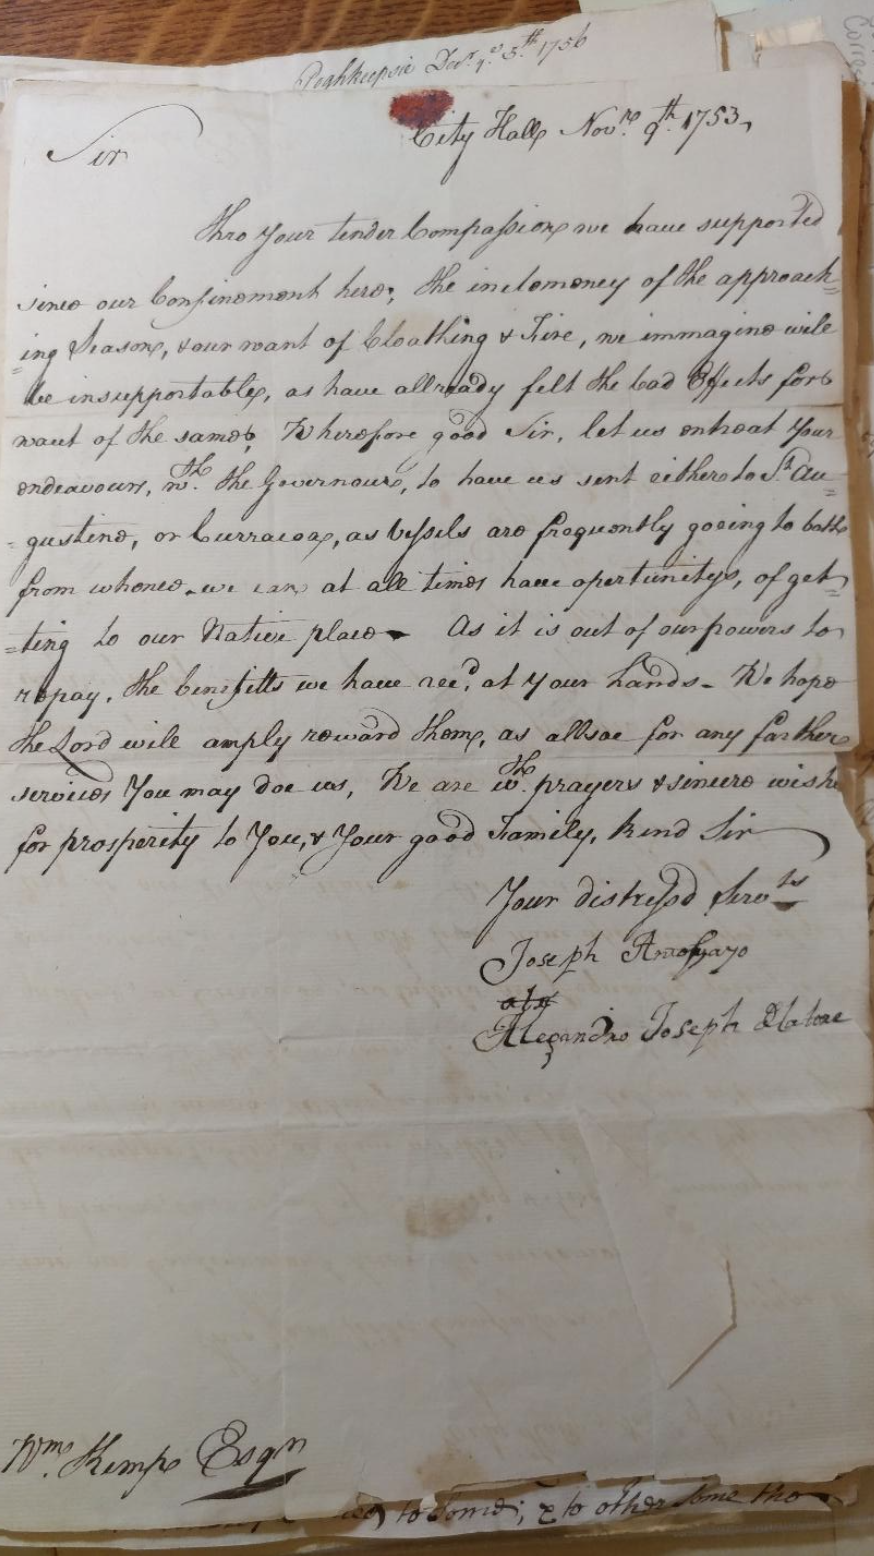 Poghkeepsie Decr. ye. 5.th 1756
City Hall Novre. 9th. 1753,
Sir
Thro Your tender Compassion we have supported
since our Confinement here; the inclemency of the approach=
=ing Season, & our want of Cloathing & Fire, we immagine will
be insupportable, as have allready felt the bad Effects for
want of the same, Wherefore good Sir, let us entreat Your
endeavours, wth. the Governour, to have us sent either to St. Au=
=gustine, or Curracoa, as Vessels are frequently goeing to both
from whence we can at all times have opertunitys, of get=
=ting to our Native place - As it is out of our powers to
repay, the benefitts we have recd. at Your hands - We hope
the Lord will amply reward them, as allsoe for any farther
services You may doe us, We are wth. prayers & sincere wishe
for prosperity to You, & Your good Family, kind Sir
Your distressd Servts
Joseph
Alegandro Joseph
Wm. Kemp Esqr
to some; & to other some tho